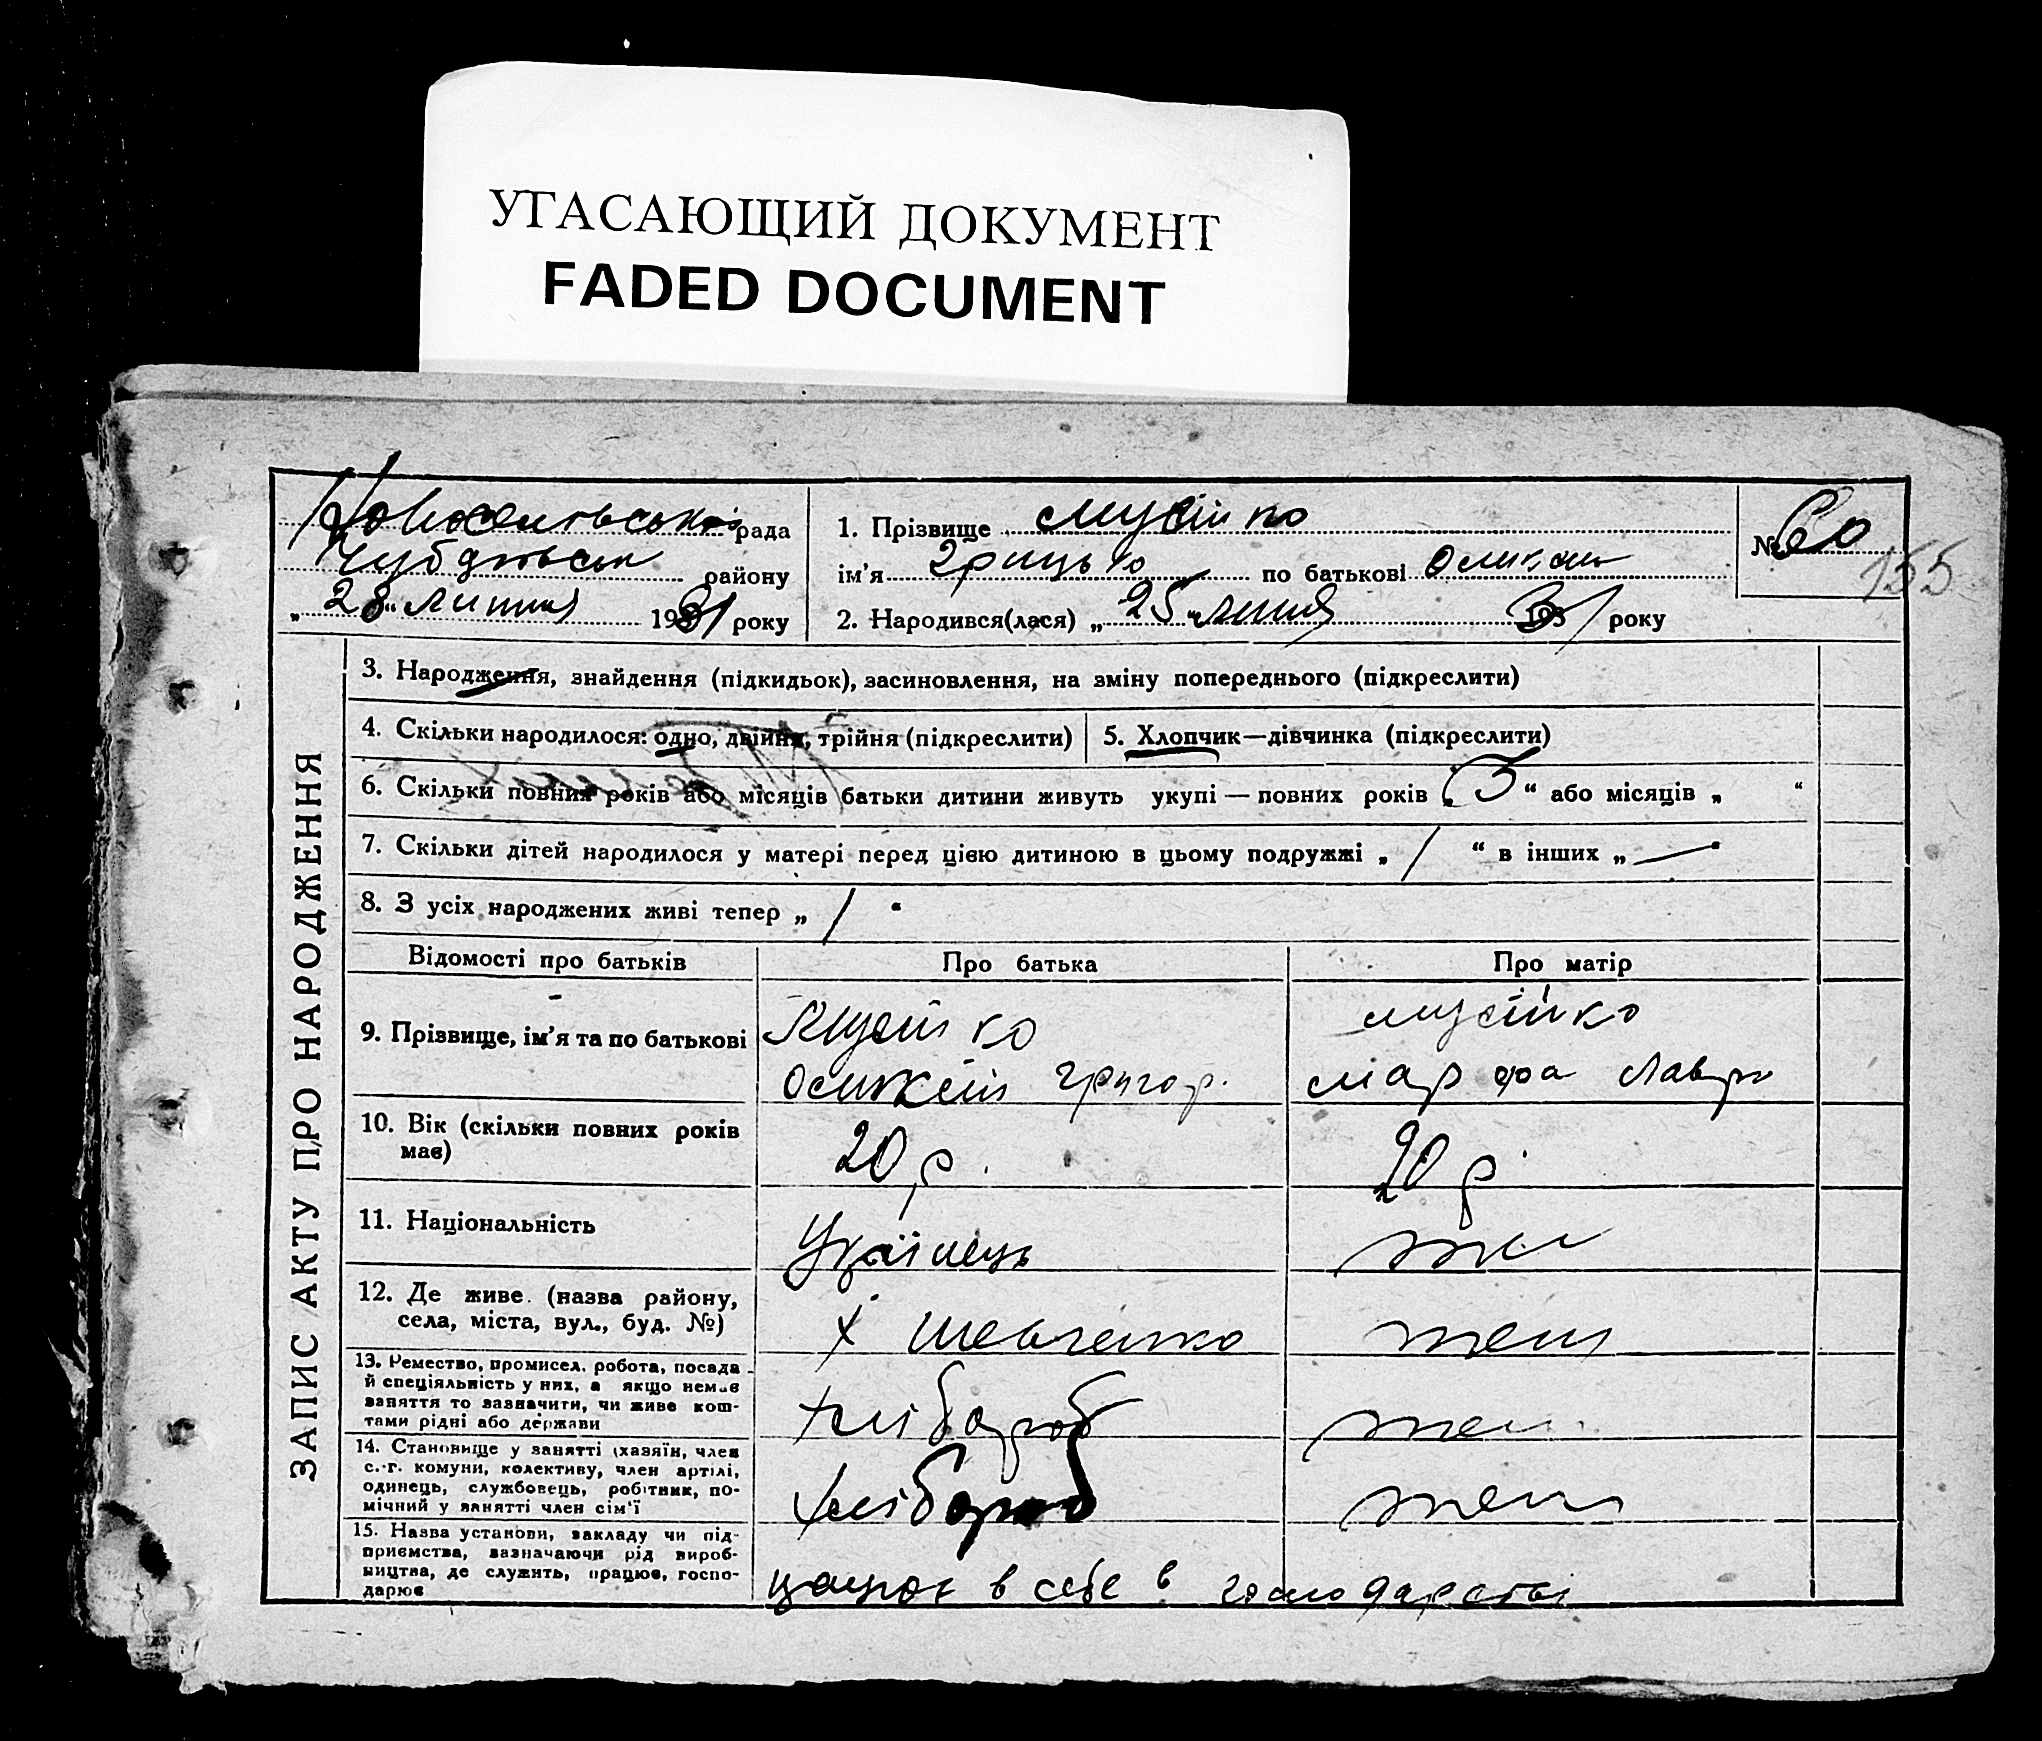 УГАСАЮЩИЙ ДОКУМЕНТ
FADED DOCUMENT
рада
району
„ 28 “ липня 1931 року
1. Прізвище Мусійко
ім’я Грицько по батькові
2. Народився(лася) „ 25 “ липня 1931 року
№ 60
155
ЗАПИС АКТУ ПРО НАРОДЖЕННЯ
3. Народження, знайдення (підкидьок), засиновлення, на зміну попереднього (підкреслити)
4. Скільки народилося: одно, двійня, трійня (підкреслити)
5. Хлопчик—дівчинка (підкреслити)
6. Скільки повних років або місяців батьки дитини живуть укупі — повних років „ 3 “ або місяців „ “
7. Скільки дітей народилося у матері перед цією дитиною в цьому подружжі „ 1 “ в інших „ — “
8. З усіх народжених живі тепер „ 1 “
Відомості про батьків
Про батька
Про матір
9. Прізвище, ім’я та по батькові
Мусійко
Григор.
Мусійко
Марфа Лавр
10. Вік (скільки повних років має)
20 р.
20 р.
11. Національність
Українець
12. Де живе (назва району, села, міста, вул., буд. №)
х Шевченко
теж
13. Ремество, промисел, робота, посада й спеціяльність у них, а якщо немає заняття то зазначити, чи живе коштами рідні або держави
хлібороб
теж
14. Становище у занятті (хазяїн, член с.-г. комуни, колективу, член артілі, одинець, службовець, робітник, помічний у занятті член сім’ї
хлібороб
теж
15. Назва установи, закладу чи підприємства, зазначаючи рід виробництва, де служить, працює, господарює
працює в себе в господарстві